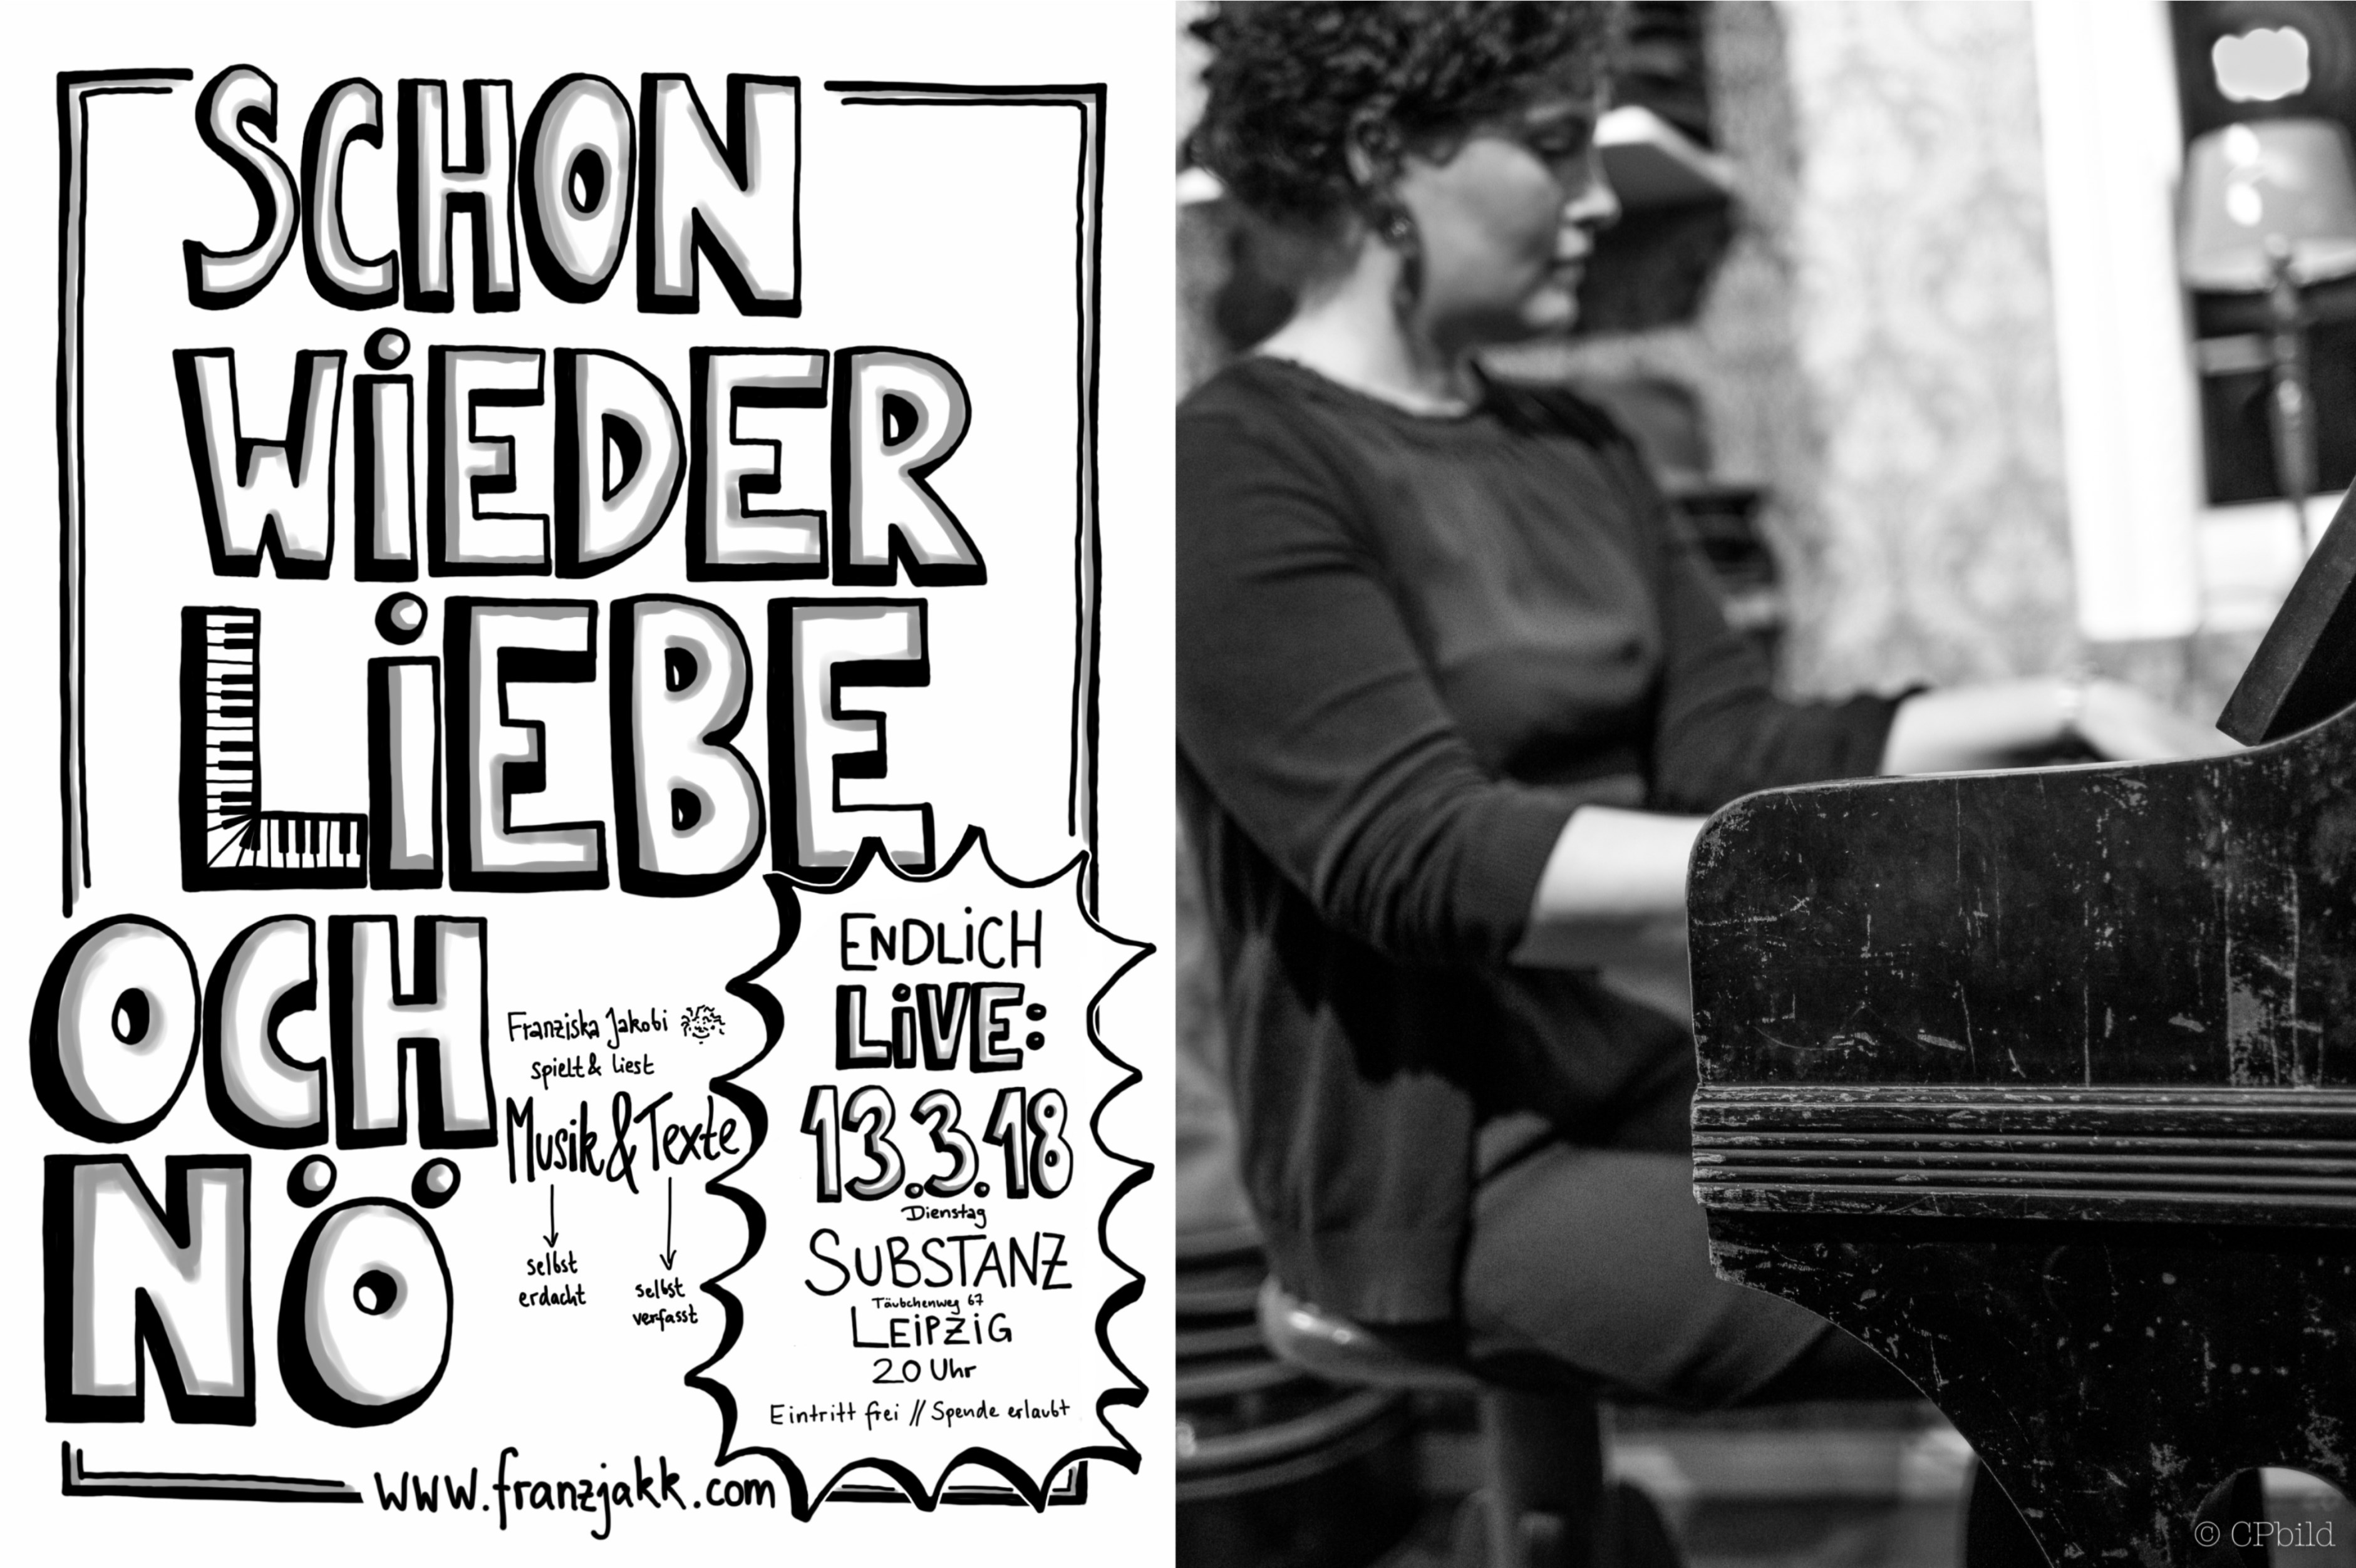 SCHON
WiEDER
LiEBE
OCH
NÖ
Franziska Jakobi
spielt & liest
Musik & Texte
selbst
erdacht
selbst
verfasst
ENDLiCH
LiVE:
13.3.18
Dienstag
SUBSTANZ
Täubchenweg 67
LEiPZiG
20 Uhr
Eintritt frei // Spende erlaubt
www.franzjakk.com
© CPbild